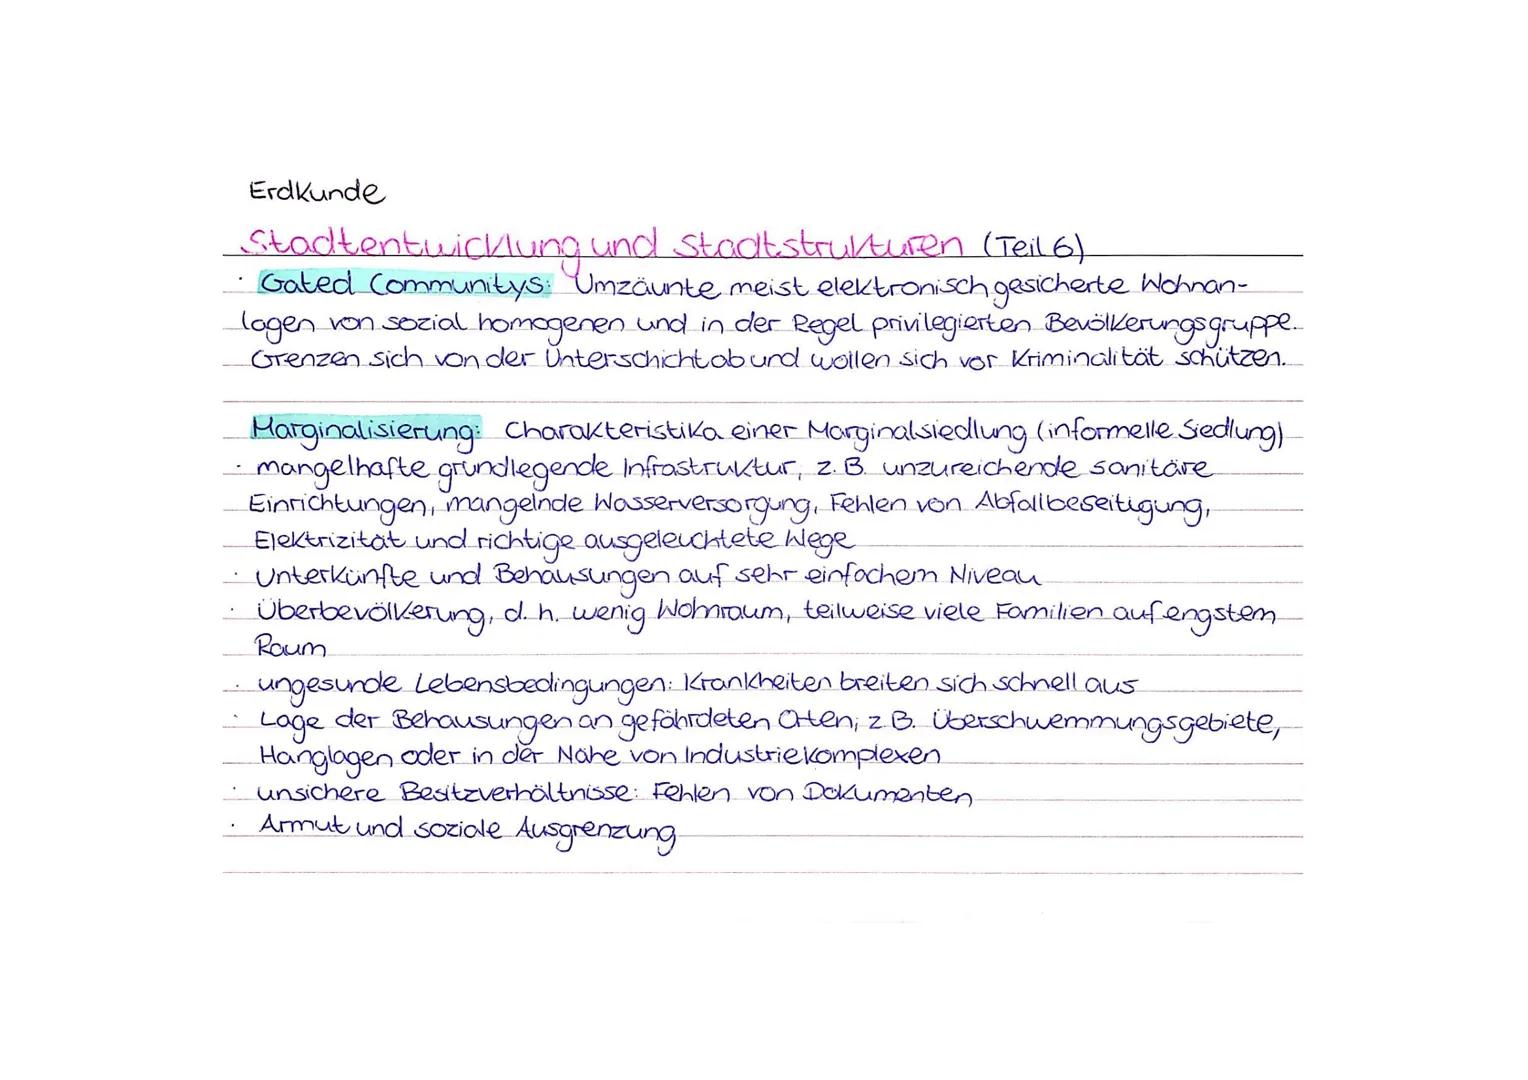 Erdkunde
Stadtentwicklung und Stadtstrukturen (Teil 6)
· Gated Communitys: Umzäunte meist elektronisch gesicherte Wohnan-
lagen von sozial homogenen und in der Regel privilegierten Bevölkerungsgruppe.
Grenzen sich von der Unterschicht ab und wollen sich vor Kriminalität schützen.
Marginalisierung: Charakteristika einer Marginalsiedlung (informelle Siedlung)
· mangelhafte grundlegende Infrastruktur, z. B. unzureichende sanitäre
Einrichtungen, mangelnde Wasserversorgung, Fehlen von Abfallbeseitigung,
Elektrizität und richtige ausgeleuchtete Wege
· Unterkünfte und Behausungen auf sehr einfachem Niveau
· Überbevölkerung, d. h. wenig Wohnraum, teilweise viele Familien auf engstem
Raum
· ungesunde Lebensbedingungen: Krankheiten breiten sich schnell aus
· Lage der Behausungen an gefährdeten Orten, z. B. Überschwemmungsgebiete,
Hanglagen oder in der Nähe von Industriekomplexen
· unsichere Besitzverhältnisse: Fehlen von Dokumenten
· Armut und soziale Ausgrenzung